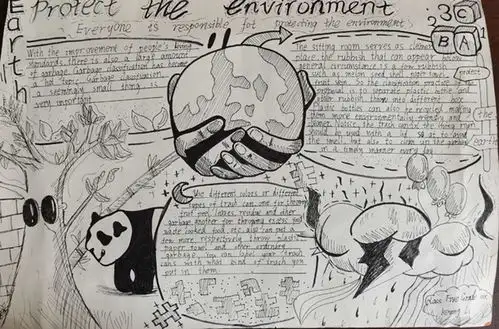 Protect the environment
Everyone is responsible for protecting the environment
Earth
With the improvement of people's living
standards, there is also a large amount
of garbage. Garbage classification has become
a hot topic. Garbage classification,
a seemingly small thing is
very important
The sitting room serves as
place, the rubbish that can appear below
general circumstance is a few rubbish
such as melon seed shell,
is to separate plastic bottle and
other rubbish throw into different box
Plastic bottles can also be recycled, making
them more environmentally friendly and
cleaner. Notice: the trash can in the
should be used with a lid so as to avoid
the smell, but also to clean up the garbage
in a timely manner every day
protect
the
earth
2 3
B A 1
Use different colors or different
types of trash can, one for throwing
fruit peel, leaves, residue and other
garbage, another for throwing excess
made cooked food, etc. also can put a
few more, respectively throw plastic
paper towel and other ordinary
garbage. You can label your trash
cans with what kind of trash you
put in them.
Class Five Grade six